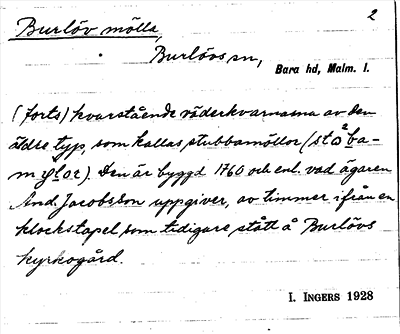 2
Burlöv mölla,
Burlövs sn,
Bara hd, Malm. l.
(forts) kvarstående väderkvarnarna av den
äldre typ, som kallas stubbamöllor (
). Den är byggd 1760 och enl. vad ägaren
And. Jacobsson uppgiver, av timmer ifrån en
klockstapel, som tidigare stått å Burlövs
kyrkogård.
I. INGERS 1928